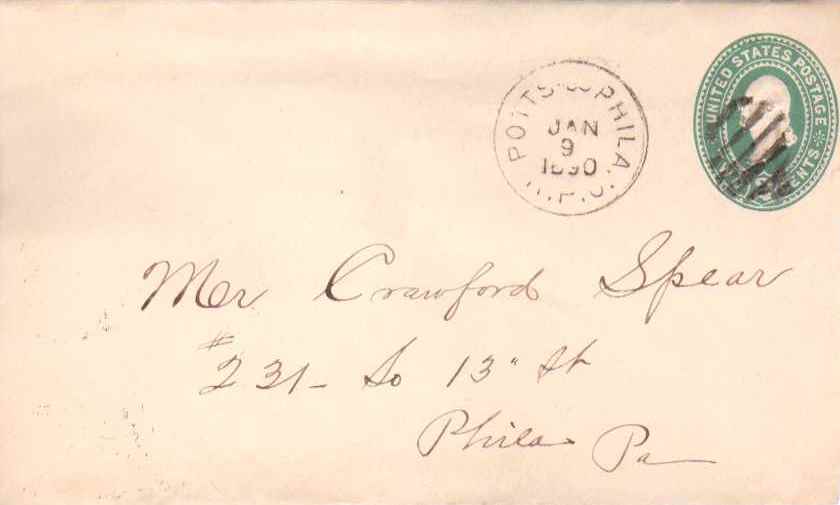 POTTS. & PHILA.
JAN
9
1890
R.P.O.
UNITED STATES POSTAGE
CENTS
Mr Crawford Spear
# 231 - So 13" St
Phila Pa